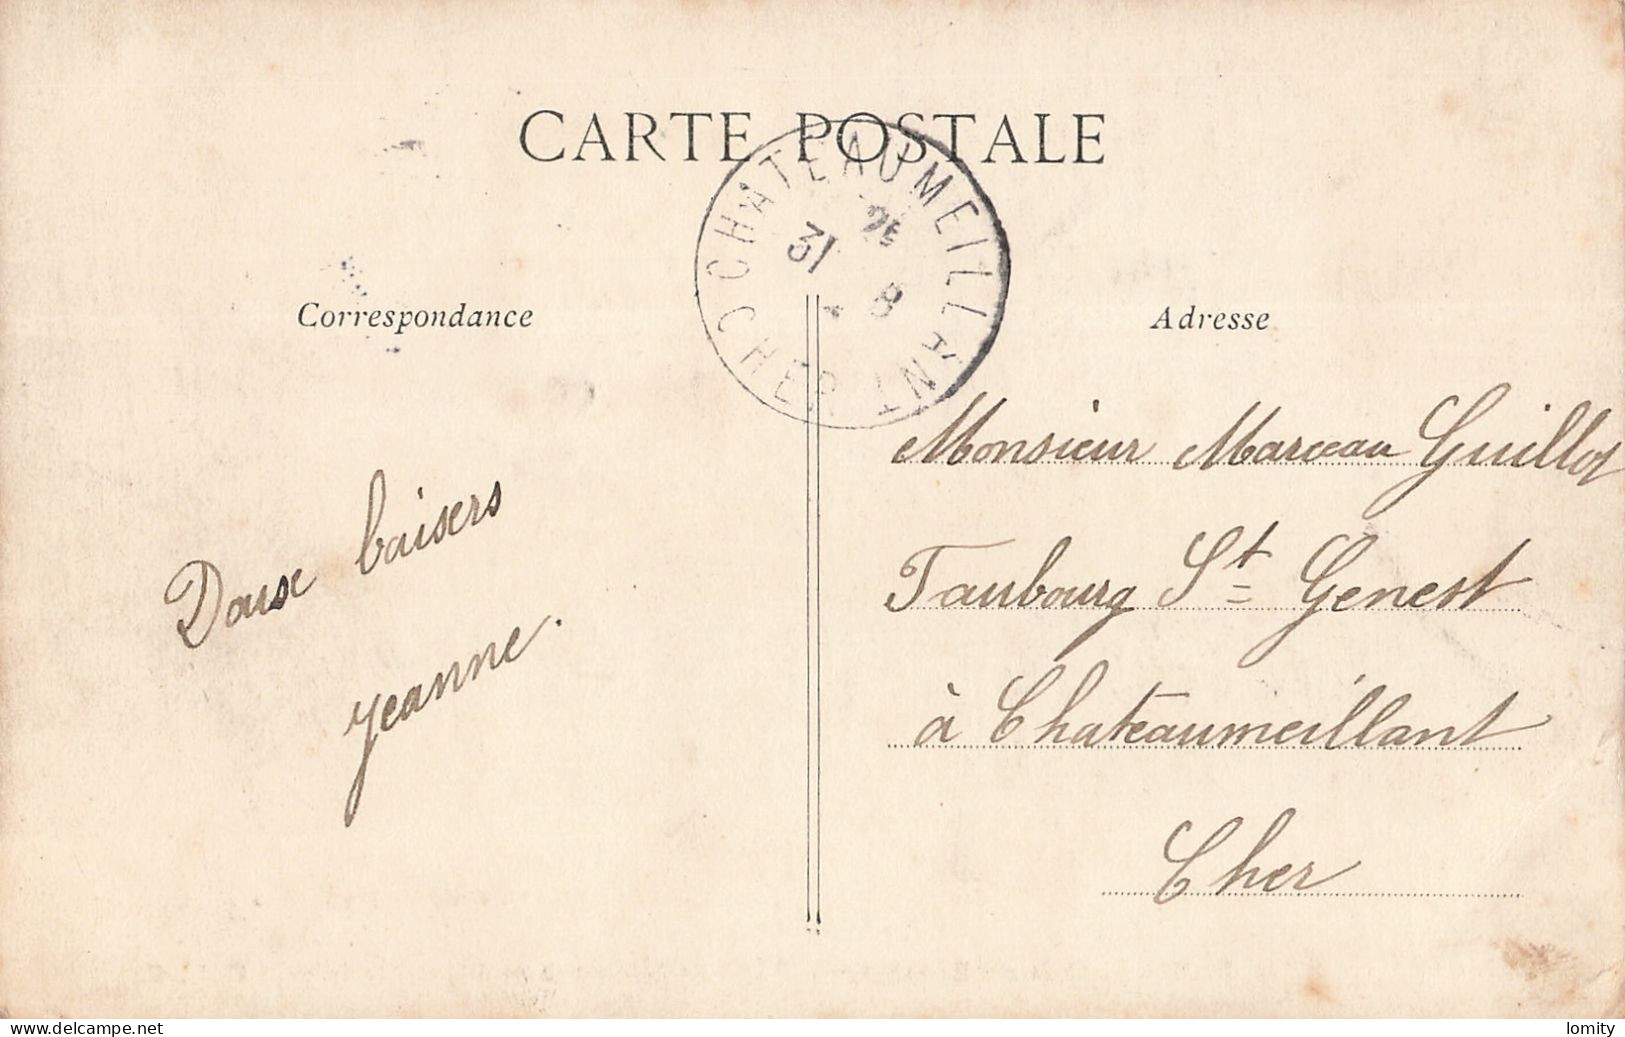 CARTE POSTALE
CHATEAUMEILLANT
31
8
CHER
Correspondance
Adresse
Doux baisers
Jeanne.
Monsieur Marceau Guillot
Faubourg St Genest
à Chateaumeillant
Cher
www.delcampe.net
lomity